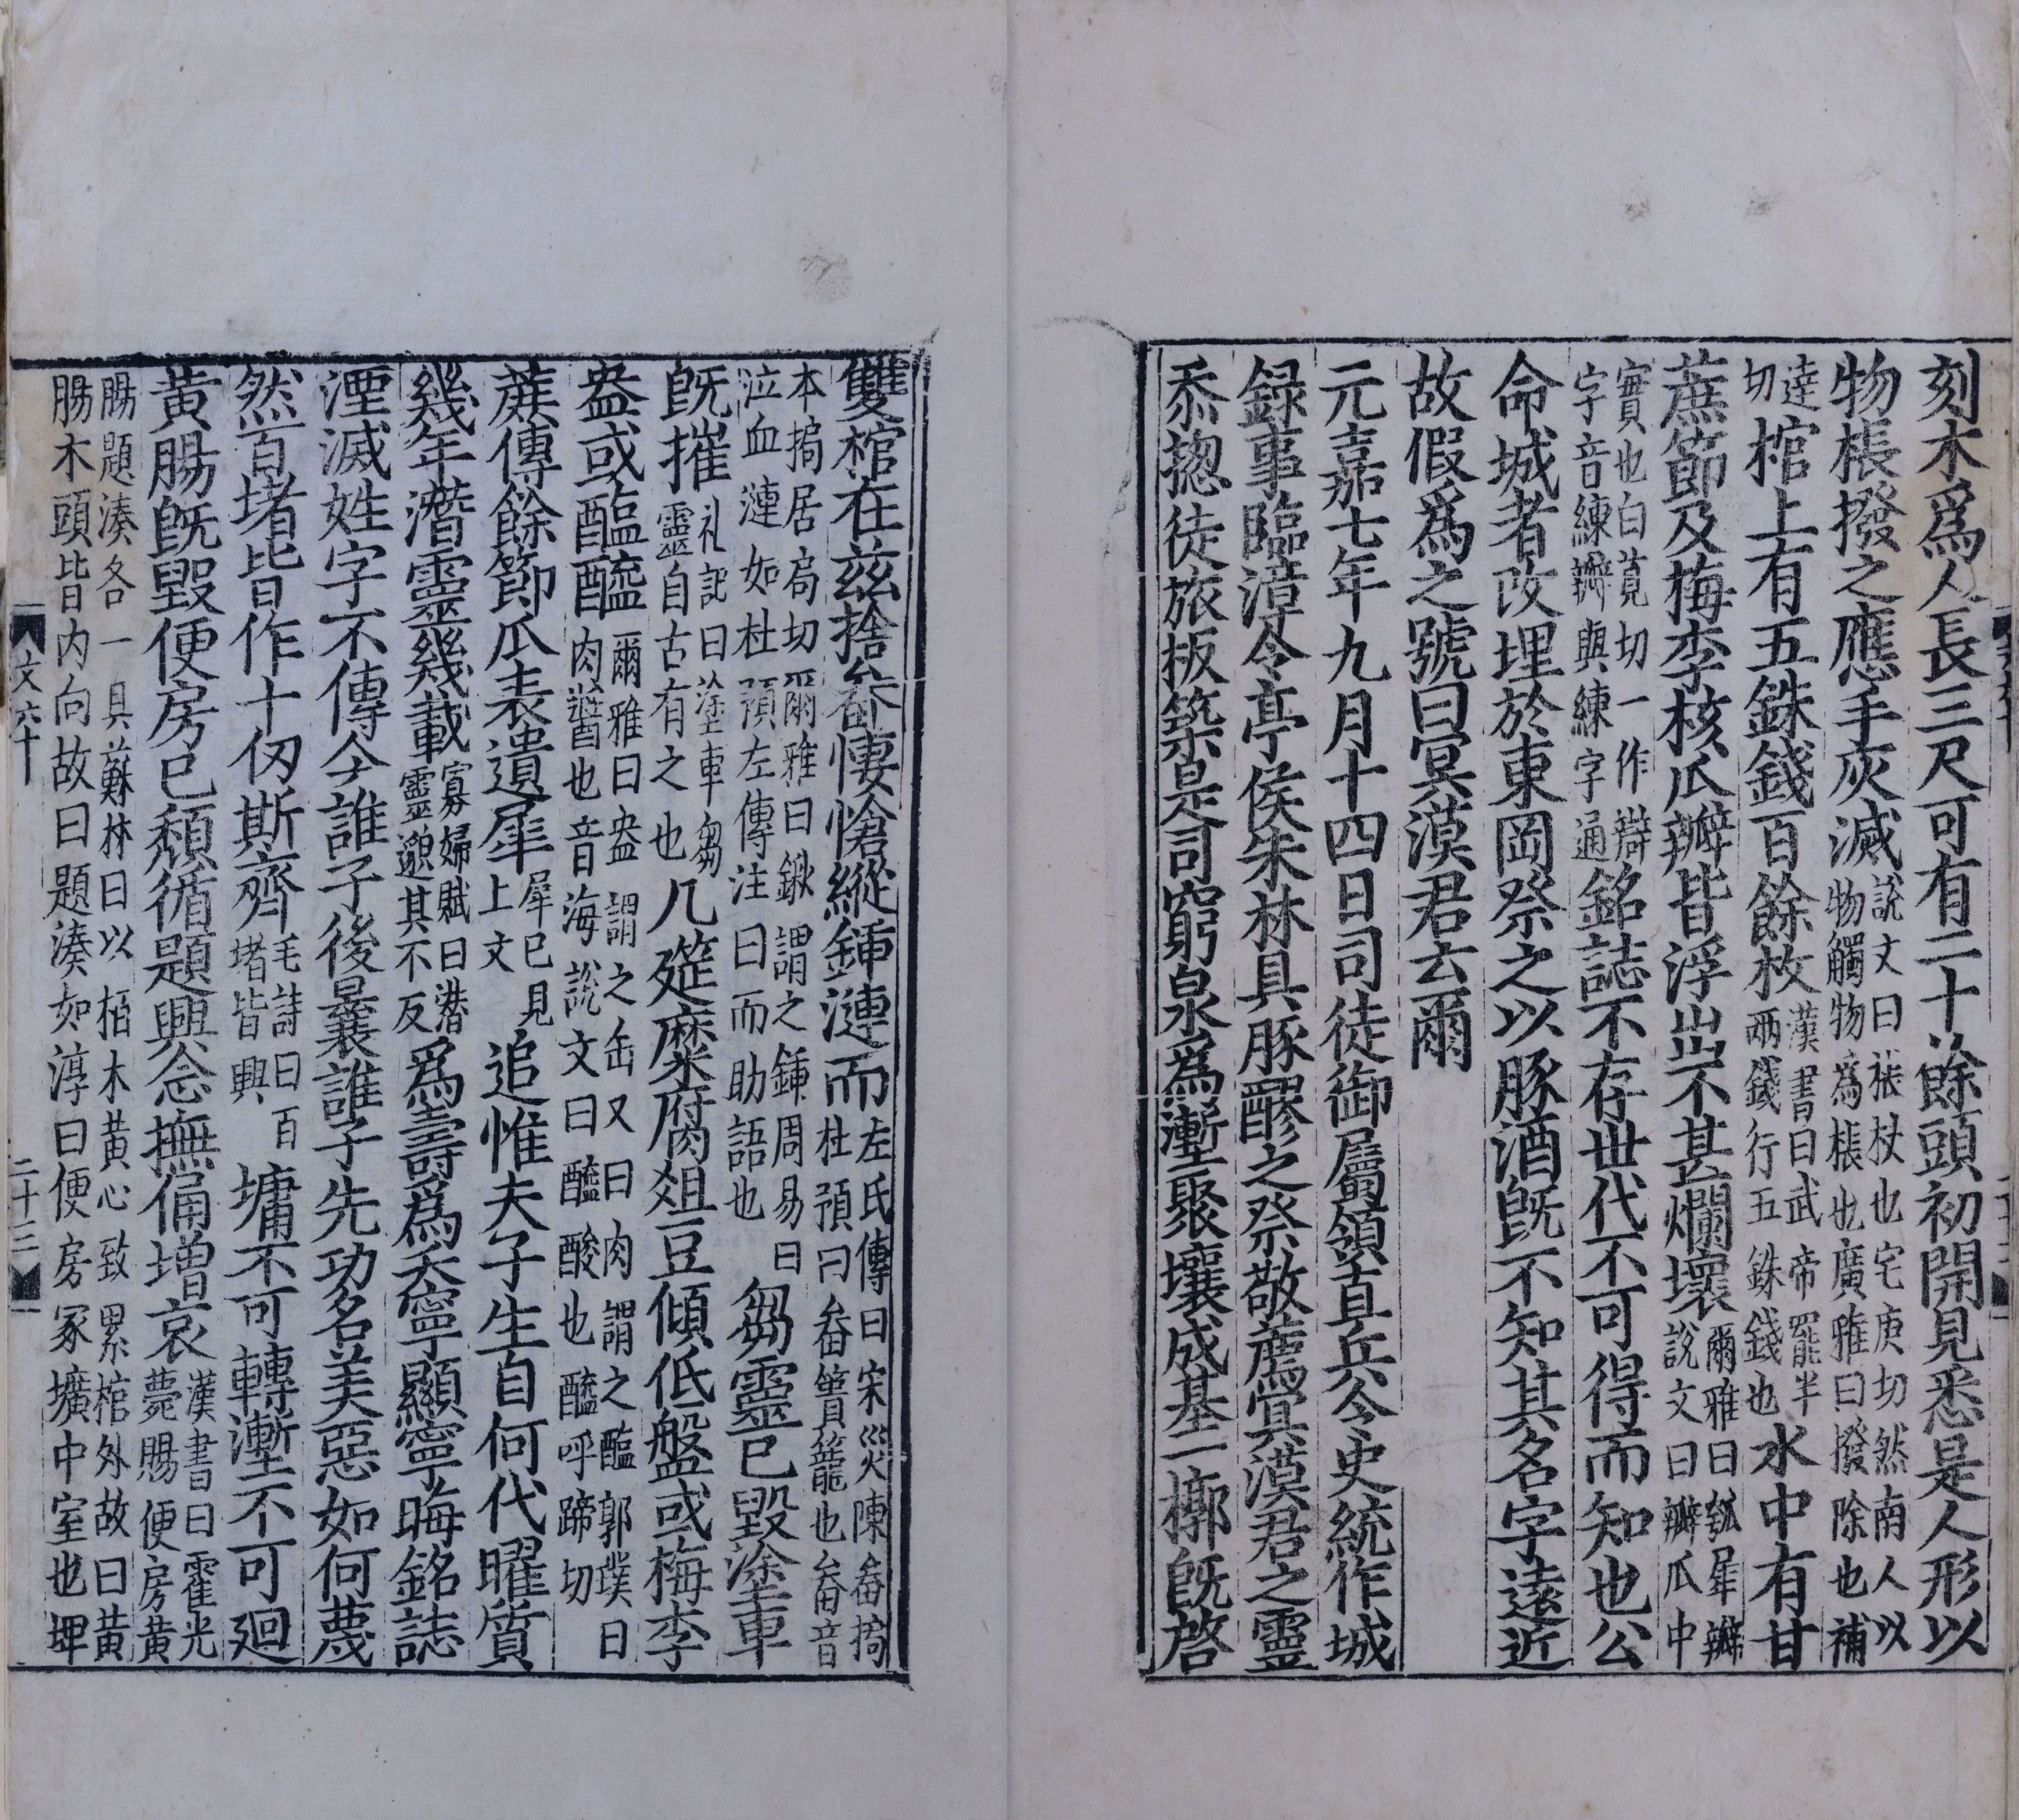 刻木爲人長三尺可有二十餘頭初開見悉是人形以
物棖撥之應手灰滅說文曰棖杖也宅庚切然南人以物觸物爲棖也廣雅曰撥除也補
達切棺上有五銖錢百餘枚漢書曰武帝罷半兩錢行五銖錢也水中有甘
蔗節及梅李核瓜瓣皆浮出不甚爛壞爾雅曰瓠犀瓣說文曰瓣瓜中
實也白莧切一作辯字音練瓣與練字通銘誌不存世代不可得而知也公
命城者改埋於東岡祭之以豚酒旣不知其名字遠近
故假爲之號曰冥漠君云爾
元嘉七年九月十四日司徒御屬領直兵令史統作城
録事臨漳令亭侯朱林具豚醪之祭敬薦冥漠君之靈
忝揔徒旅板築是司窮泉爲塹聚壤成基一槨旣啓
雙棺在兹捨畚悽愴縱鍤漣而左氏傳曰宋災陳畚挶杜預曰畚簣籠也畚音
本挶居局切爾雅曰鍬謂之鍤周易曰泣血漣如杜預左傳注曰而助語也芻靈已毀塗車
旣摧礼記曰塗車芻靈自古有之也几筵糜腐俎豆傾低盤或梅李
盎或醢醯爾雅曰盎謂之缶又曰肉謂之醢郭璞曰肉醬也音海說文曰醯酸也醯呼蹄切
蔗傳餘節瓜表遺犀犀已見上文追惟夫子生自何代曜質
幾年潛靈幾載寡婦賦曰潛靈邈其不反爲壽爲夭寧顯寧晦銘誌
湮滅姓字不傳今誰子後曩誰子先功名美惡如何蔑
然百堵皆作十仞斯齊毛詩曰百堵皆興墉不可轉塹不可廻
黃腸旣毀便房已頹循題興念撫俑增哀漢書曰霍光薨賜便房黃
腸題湊各一具蘇林曰以栢木黃心致累棺外故曰黃腸木頭皆内向故曰題湊如淳曰便房冢壙中室也埤
文六十
二十三